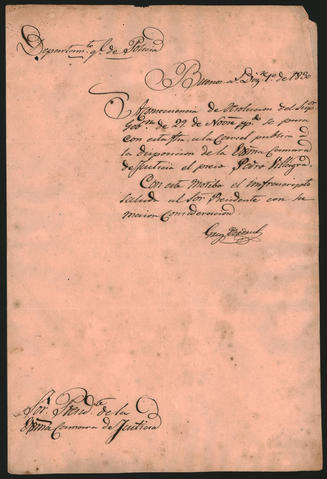 Departamto. gl. de Policia
Buenos As. Dize. 1o. de 1830
A consecuencia de resolucion del Supr.
Gobno. de 29 de Nove. ppdo. se pasa
con esta fha. a la Carcel publica a
la disposicion de la Exma. Camara
de Justicia el preso Pedro Villagra.
Con este motivo el infrascripto
saluda al Sor. Presidente con su
mayor consideracion.
Sor. Presidte. de la
Exma. Camara de Justicia